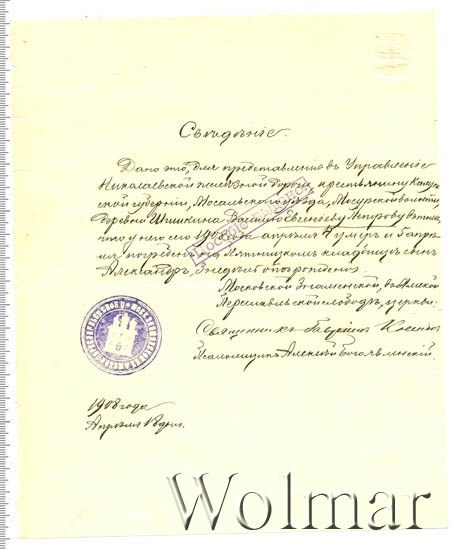 Свѣдѣніе.
Дано это, для представленія въ Управленіе
Николаевской желѣзной дороги, крестьянину Калуж-
ской губерніи, Мосальскаго уѣзда, Мосурской волости
деревни Шишкина Василію Евгеніеву Петрову въ томъ,
что у него сего 1908 года апрѣля 4 умеръ и 5 апрѣ-
ля погребенъ на Пятницкомъ кладбищѣ сынъ
Александръ,
Московской Знаменской, въ
Переяславльской слободѣ, церкви:
Священникъ Гавріилъ
Псаломщикъ Алексѣй
1908 года
Апрѣля дня.
Wolmar